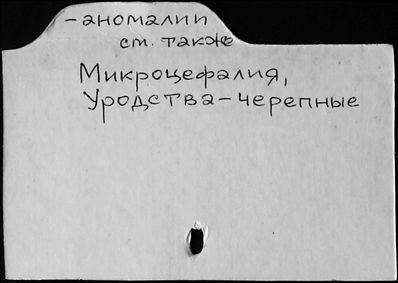 -аномалии
см. также
Микроцефалия,
Уродства-черепные